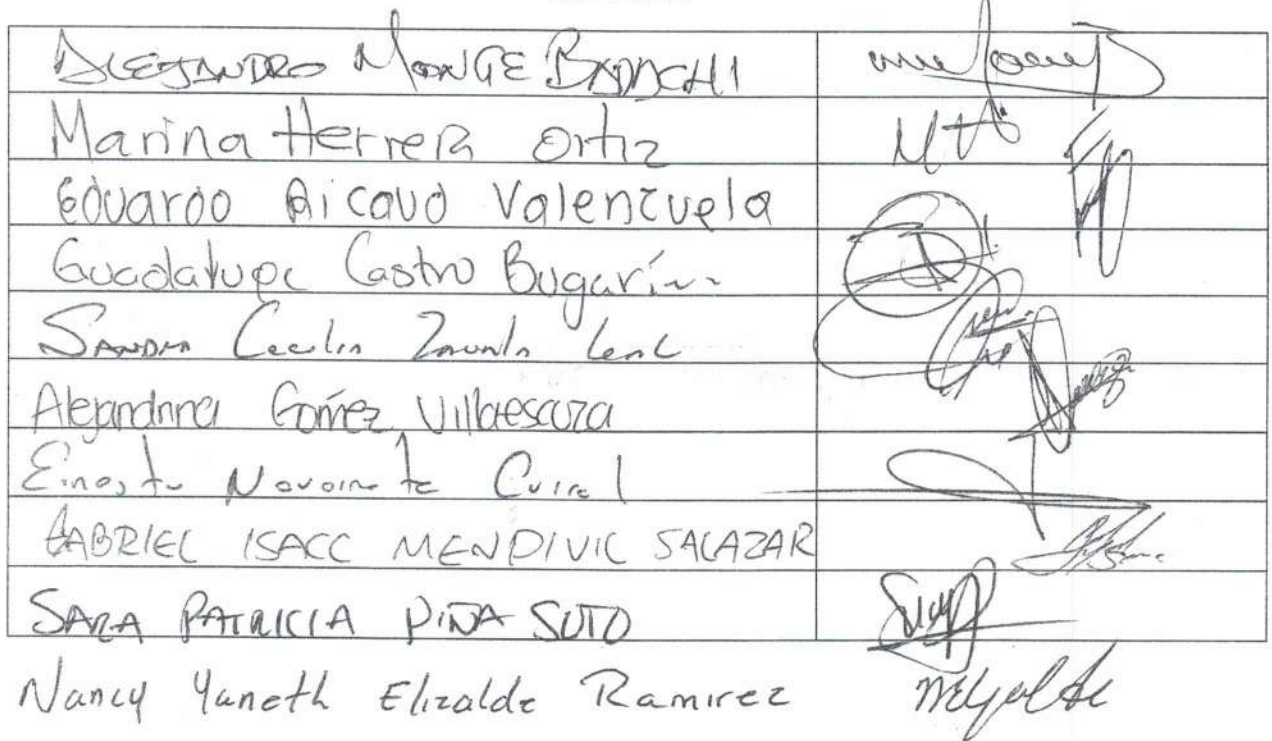 ALEJANDRO MONGE BADACHI
Marina Herrera Ortiz
Eduardo Aicaud Valenzuela
Guadalupe Castro Bugarín
SANDRA Cecilia Leal
Alejandrina Gómez Villaescuza
GABRIEL ISACC MENDIVIL SALAZAR
SARA PATRICIA PIÑA SOTO
Nancy Yaneth Elizalde Ramirez